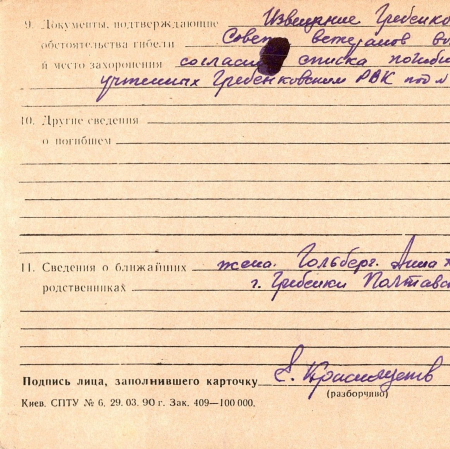 9. Документы, подтверждающие Извещение Гребенко
обстоятельства гибели Совет ветеранов во
и место захоронения согласно списка погибш
учтенных Гребенковским РВК под №
10. Другие сведения
о погибшем
11. Сведения о ближайших жена. Гольберг. Анна
родственниках г. Гребенки Полтавс
Подпись лица, заполнившего карточку Е.
(разборчиво)
Киев. СПТУ № 6, 29. 03. 90 г. Зак. 409—100 000.